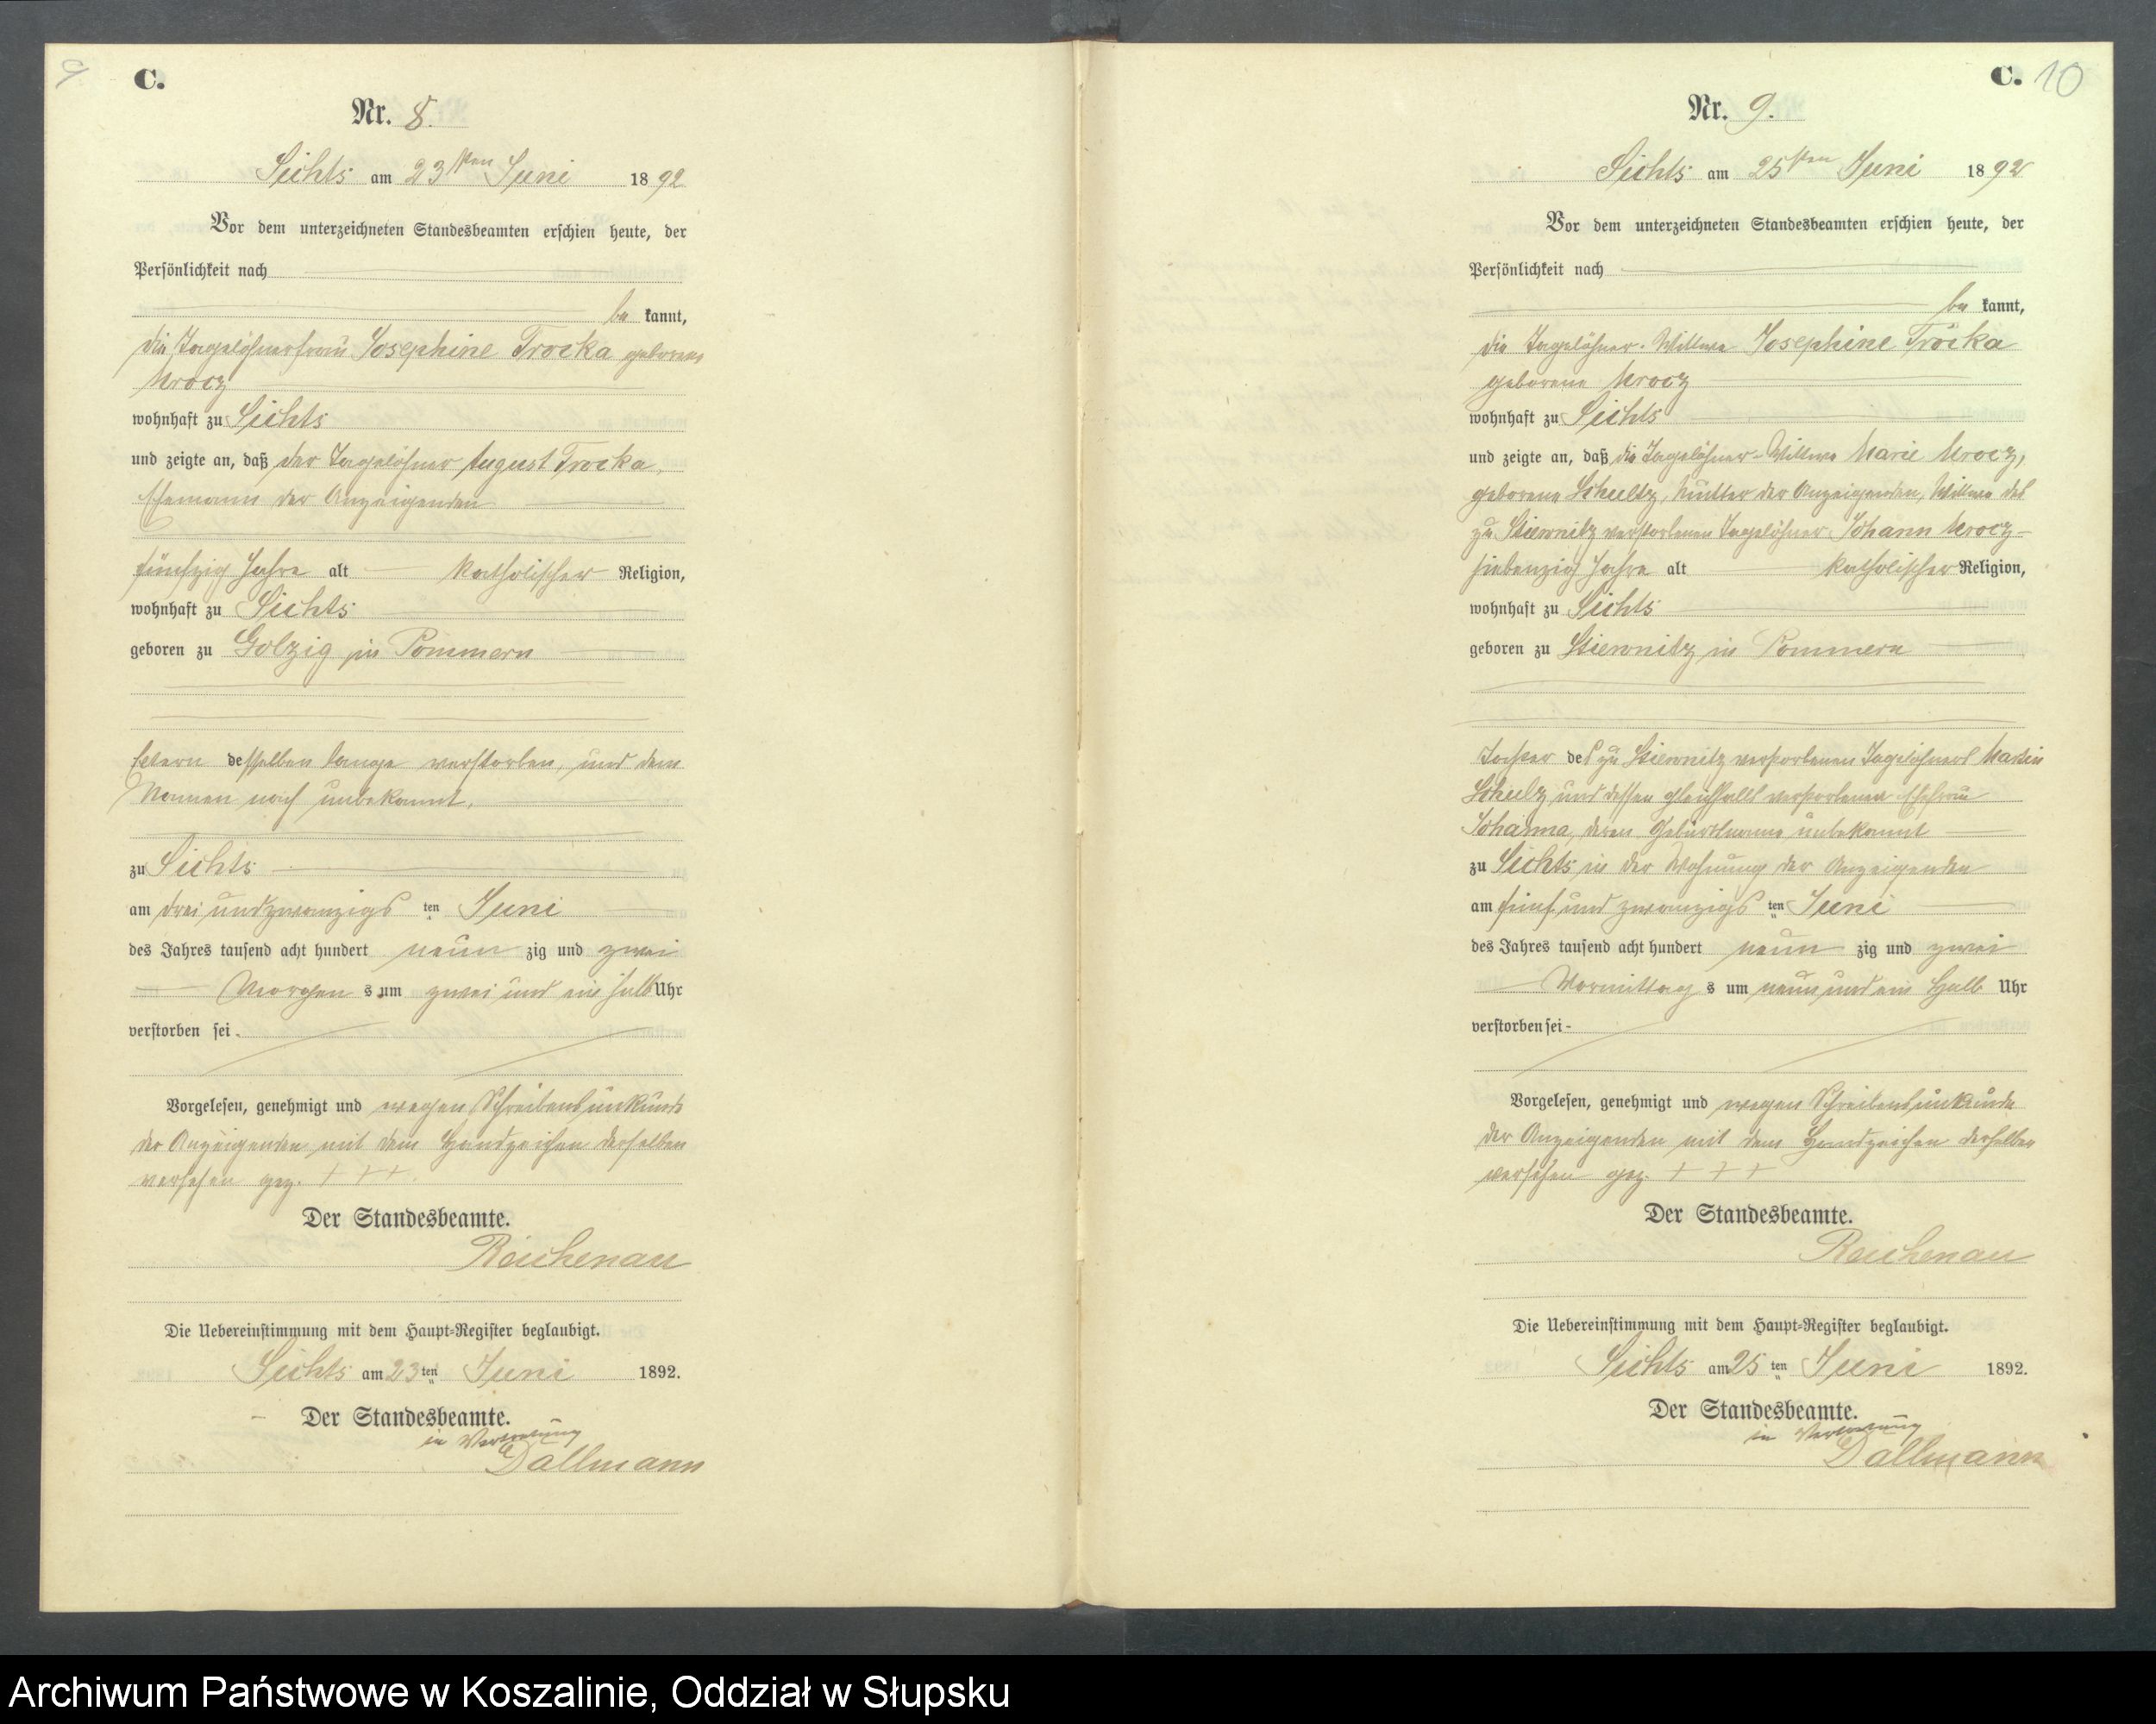 9
C.
Nr. 8.
Sichts am 23sten Juni 1892
Vor dem unterzeichneten Standesbeamten erschien heute, der
Persönlichkeit nach
be kannt,
die Tagelöhnerfrau Josephine Trocka geborene
Mrocz
wohnhaft zu Sichts
und zeigte an, daß der Tagelöhner August Trocka,
Ehemann der Anzeigenden
fünfzig Jahre alt katholischer Religion,
wohnhaft zu Sichts
geboren zu Golzig in Pommern
Eltern desselben lange verstorben, und dem
Namen nach unbekannt.
zu Sichts
am drei und zwanzigsten Juni
des Jahres tausend acht hundert neun zig und zwei
Morgens um zwei und ein halb Uhr
verstorben sei.
Vorgelesen, genehmigt und wegen Schreibensunkunde
der Anzeigenden mit dem Handzeichen derselben
versehen gez. +++.
Der Standesbeamte.
Reichenau
Die Uebereinstimmung mit dem Haupt-Register beglaubigt.
Sichts am 23ten Juni 1892.
Der Standesbeamte.
in Vertretung
Dallmann
C. 10
Nr. 9.
Sichts am 25sten Juni 1892
Vor dem unterzeichneten Standesbeamten erschien heute, der
Persönlichkeit nach
be kannt,
die Tagelöhner-Wittwe Josephine Trocka
geborene Mrocz
wohnhaft zu Sichts
und zeigte an, daß die Tagelöhner-Wittwe Marie Mrocz,
geborene Schultz, Mutter der Anzeigenden, Wittwe des
zu Stiewnitz verstorbenen Tagelöhner Johann Mrocz
siebenzig Jahre alt katholischer Religion,
wohnhaft zu Sichts
geboren zu Stiewnitz in Pommern
Tochter des zu Stiewnitz verstorbenen Tagelöhners Martin
Schulz und dessen gleichfalls verstorbenen Ehefrau
Johanna, deren Geburtsname unbekannt
zu Sichts in der Wohnung der Anzeigenden
am fünf und zwanzigsten Juni
des Jahres tausend acht hundert neun zig und zwei
Vormittags um neun und ein halb Uhr
verstorben sei-
Vorgelesen, genehmigt und wegen Schreibensunkunde
der Anzeigenden mit dem Handzeichen derselben
versehen gez. +++
Der Standesbeamte.
Reichenau
Die Uebereinstimmung mit dem Haupt-Register beglaubigt.
Sichts am 25ten Juni 1892.
Der Standesbeamte.
in Vertretung
Dallmann
Archiwum Państwowe w Koszalinie, Oddział w Słupsku